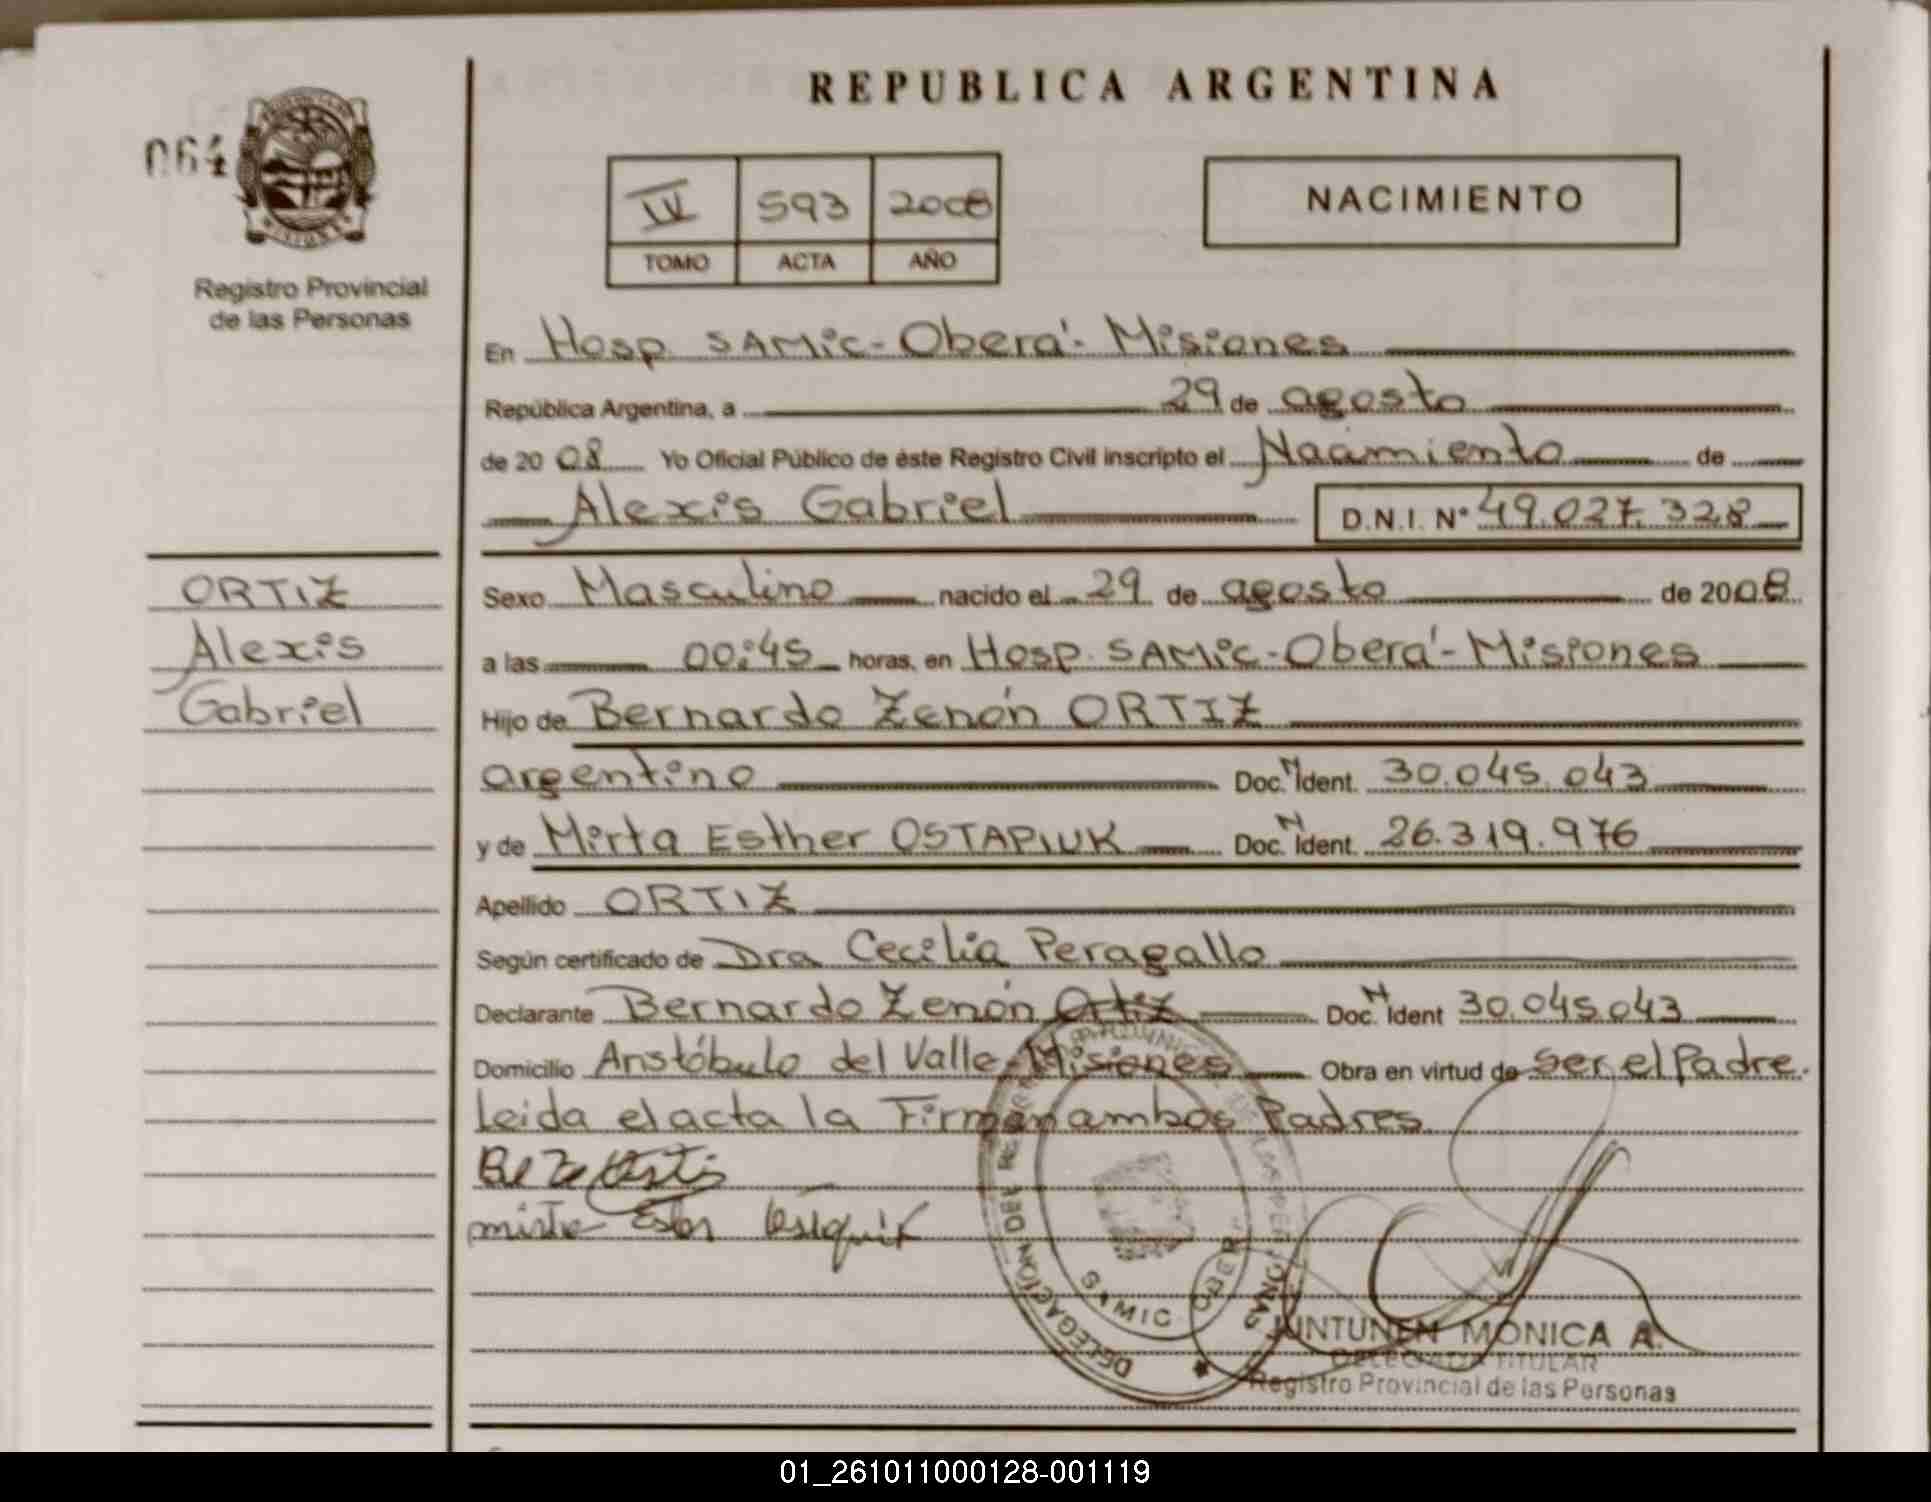 REPUBLICA ARGENTINA
064
IV 593 2008
TOMO ACTA AÑO
NACIMIENTO
Registro Provincial
de las Personas
En Hosp. SAMic - Oberá - Misiones
República Argentina, a 29 de agosto
de 20 08 Yo Oficial Público de éste Registro Civil inscripto el Nacimiento de
Alexis Gabriel D.N.I. N° 49.027.328
ORTIZ
Alexis
Gabriel
Sexo Masculino nacido el 29 de agosto de 2008
a las 00:45 horas, en Hosp. SAMic - Oberá - Misiones
Hijo de Bernardo Zenón ORTIZ
argentino Doc. N Ident. 30.045.043
y de Mirta Esther OSTAPIUK Doc. N Ident. 26.319.976
Apellido ORTIZ
Según certificado de Dra Cecilia Peragallo
Declarante Bernardo Zenón Ortiz Doc. N Ident 30.045.043
Domicilio Aristóbulo del Valle - Misiones Obra en virtud de ser el Padre.
Leida el acta la Firman ambos Padres
DELEGACIÓN DEL
SAMIC OBER
JUNTUNEN MONICA A.
DELEGADA TITULAR
Registro Provincial de las Personas
01_261011000128-001119